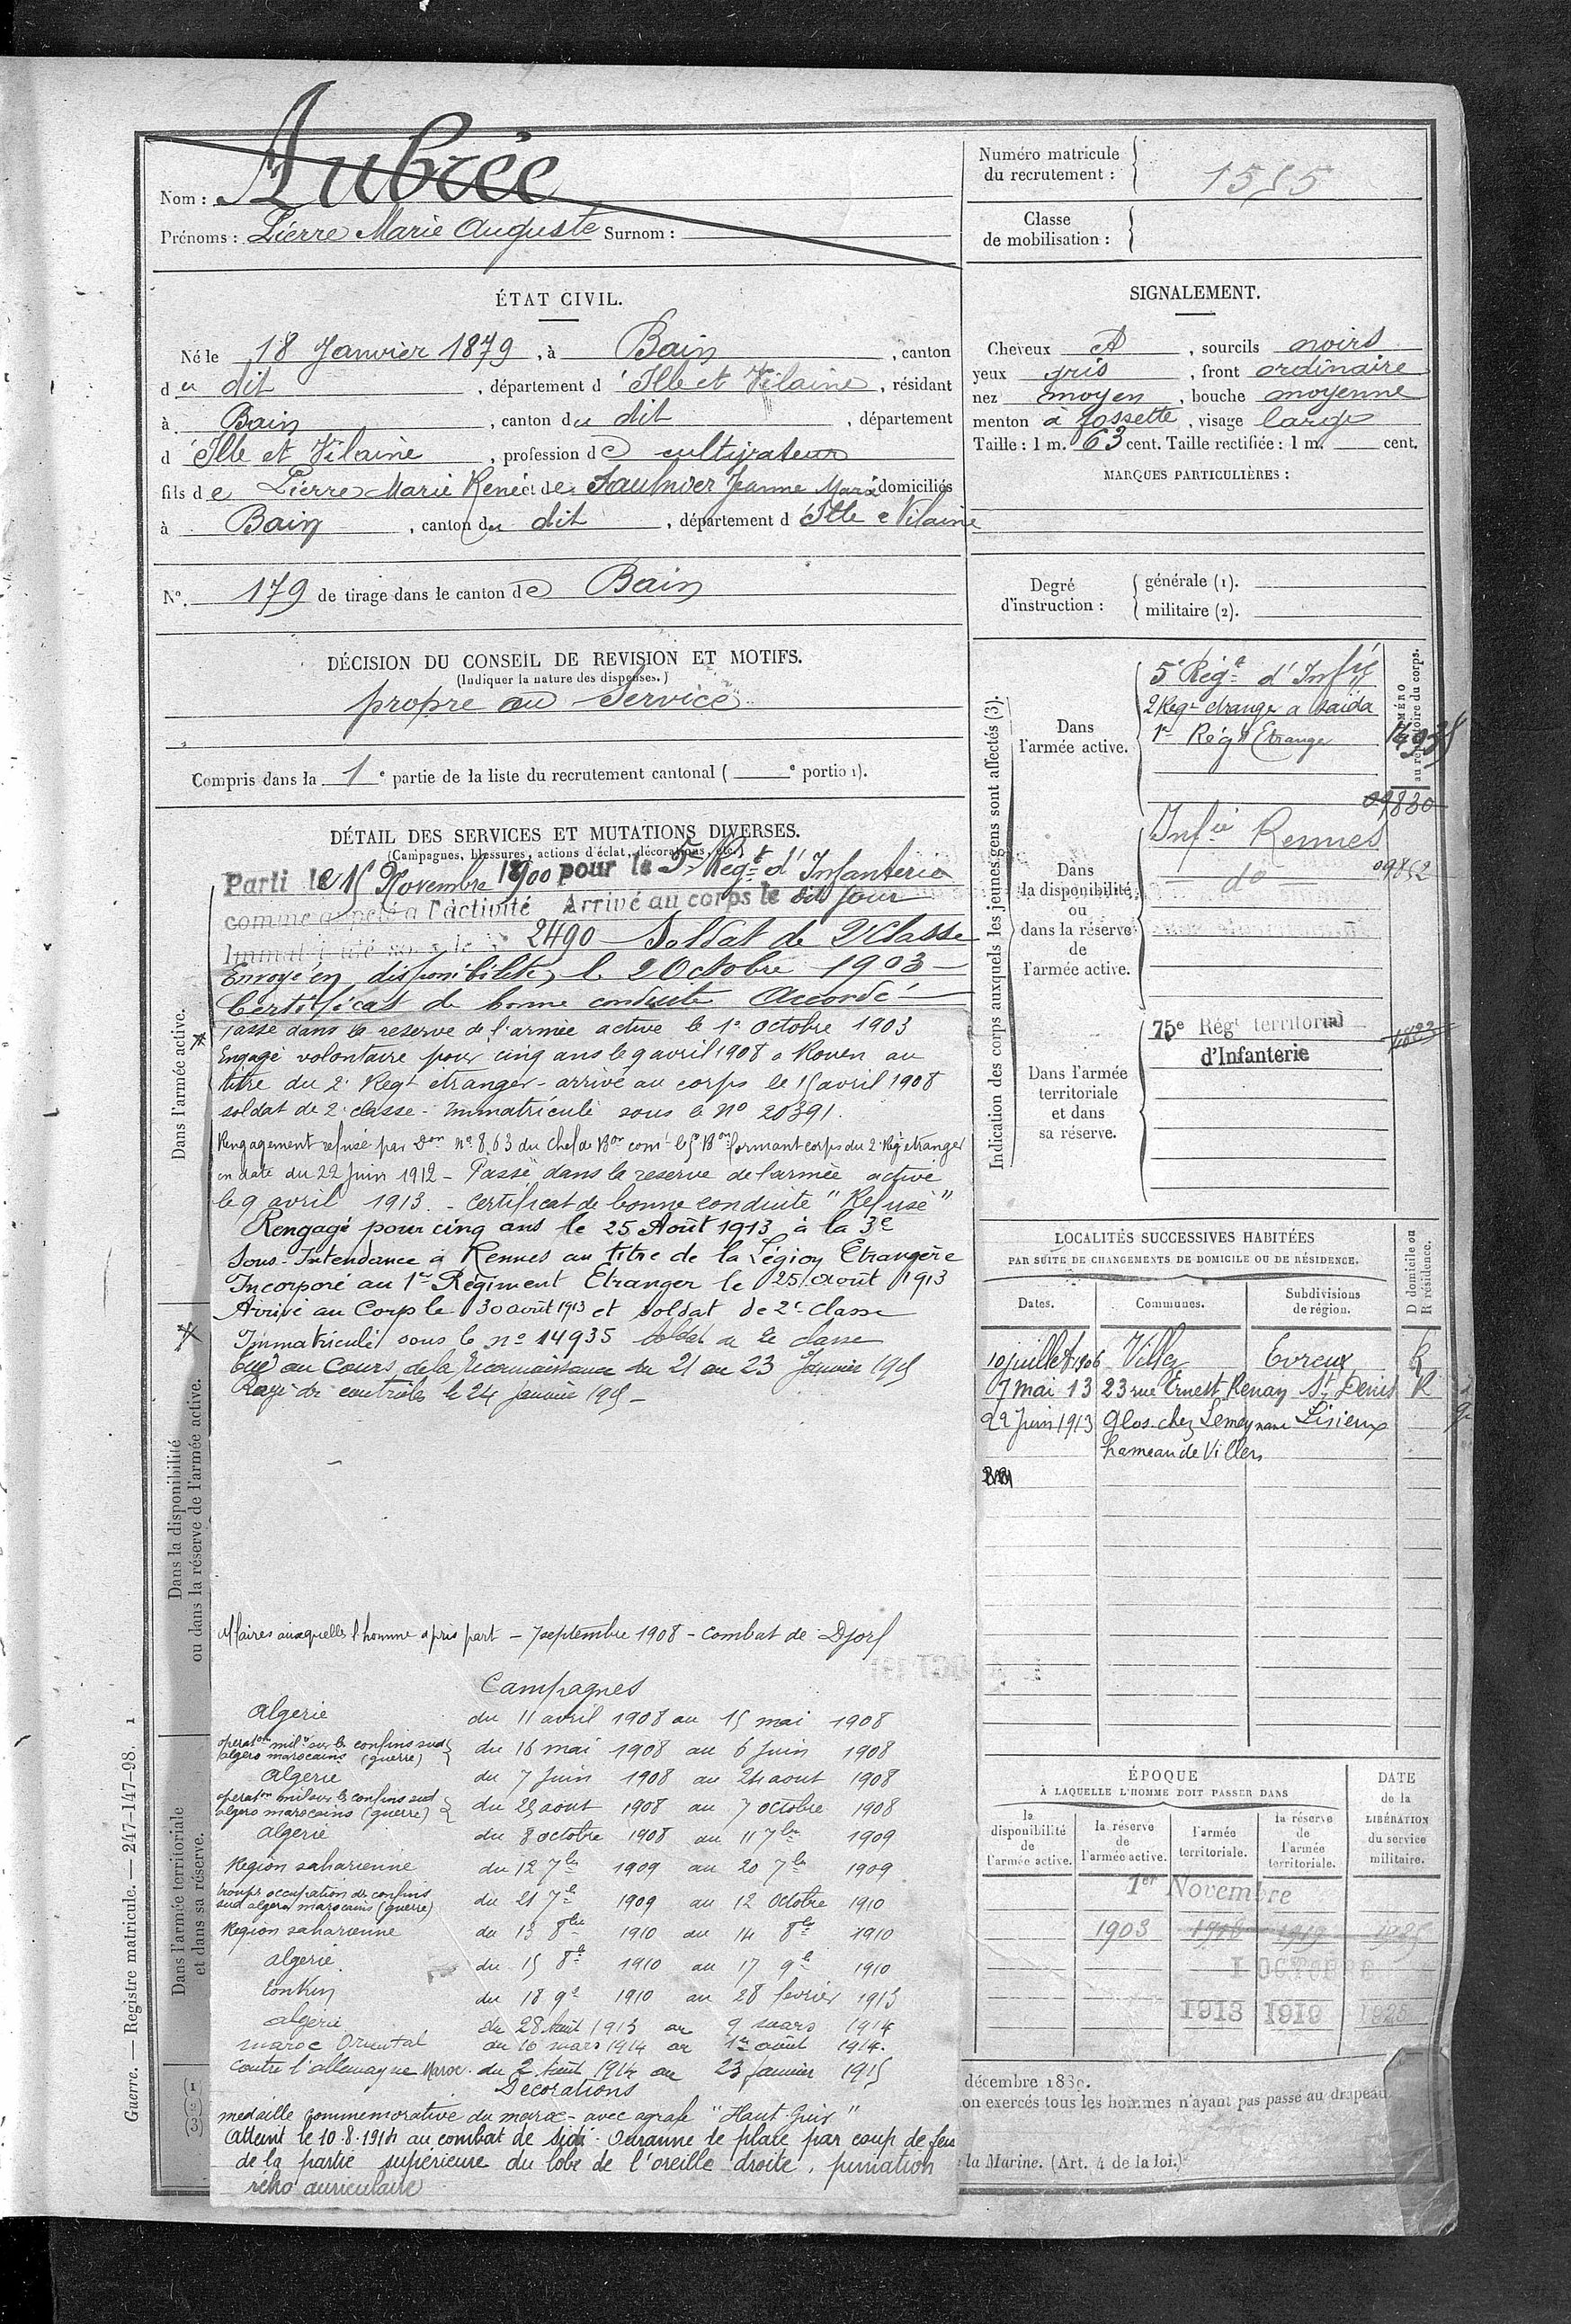 Nom : Aubrée
Prénoms : Pierre Marie Auguste Surnom :
Numéro matricule
du recrutement : 1515
Classe
de mobilisation :
ÉTAT CIVIL.
Né le 18 Janvier 1879, à Bain, canton
du dit, département d'Ille et Vilaine, résidant
à Bain, canton du dit, département
d'Ille et Vilaine, profession de cultivateur
fils de Pierre Marie René et de Saulnier Jeanne Marie domiciliés
à Bain, canton du dit, département d'Ille e Vilaine
N°. 179 de tirage dans le canton de Bain
DÉCISION DU CONSEIL DE REVISION ET MOTIFS.
(Indiquer la nature des dispenses.)
propre au service
Compris dans la 1e partie de la liste du recrutement cantonal ( e portion).
SIGNALEMENT.
Cheveux , sourcils noirs
yeux gris, front ordinaire
nez moyen, bouche moyenne
menton à fossette, visage large
Taille : 1 m. 63 cent. Taille rectifiée : 1 m. cent.
MARQUES PARTICULIÈRES :
Degré
d'instruction :
générale (1).
militaire (2).
DÉTAIL DES SERVICES ET MUTATIONS DIVERSES.
(Campagnes, blessures, actions d'éclat, décorations, etc.)
Parti le 15 Novembre 1900 pour le 5e Régt d'Infanterie
comme appelé à l'activité Arrivé au corps le dit jour
Immatriculé sous le n° 2490 Soldat de 2e Classe
Envoyé en disponibilité le 2 Octobre 1903
Certificat de bonne conduite Accordé
Passé dans la reserve de l'armée active le 1er octobre 1903
Engagé volontaire pour cinq ans le 9 avril 1908 a Rouen au
titre du 2e Regt étranger - arrivé au corps le 15 avril 1908
soldat de 2e classe - Immatriculé sous le no 20391.
Rengagement refusé par Don no 863 du Chef de Bon comt le 5e Bon formant corps du 2e Rég etranger
en date du 22 Juin 1912 - Passé dans la reserve de l'armée active
le 9 avril 1913. - Certificat de bonne conduite "Refusé"
Rengagé pour cinq ans le 25 Août 1913 à la 3e
Sous-Intendance à Rennes au titre de la Légion Etrangère
Incorporé au 1er Régiment Etranger le 25 Août 1913
Arrivé au Corps le 30 août 1913 et soldat de 2e Classe
Immatriculé sous le no 14935 soldat de 2e classe
Tué au Cours de la Reconnaissance du 21 au 23 Janvier 1915
Rayé des contrôles le 24 janvier 1915 -
Affaires auxquelles l'homme a pris part - 7 septembre 1908 - combat de Djorf
Campagnes
Algerie du 11 avril 1908 au 15 mai 1908
operaton milre sur les confins sud
algero marocains (guerre) du 16 mai 1908 au 6 Juin 1908
Algerie du 7 Juin 1908 au 24 aout 1908
operaton mil sur les confins sud
algero marocains (guerre) du 25 aout 1908 au 7 octobre 1908
Algerie du 8 octobre 1908 au 11 7bre 1909
Region saharienne du 12 7bre 1909 au 20 7bre 1909
troupes occupation des confins
sud algero marocains (guerre) du 21 7bre 1909 au 12 Octobre 1910
Region saharienne du 13 8bre 1910 au 14 8bre 1910
Algerie du 15 8bre 1910 au 17 9bre 1910
Tonkin du 18 9bre 1910 au 28 fevrier 1913
Algerie du 28 Août 1913 au 9 mars 1914
Maroc Oriental du 10 mars 1914 au 1er août 1914.
Contre l'Allemagne Maroc du 2 Août 1914 au 23 Janvier 1915
Decorations
medaille commemorative du maroc - avec agrafe "Haut-Guir"
Atteint le 10.8.1914 au combat de Sidi le place par coup de feu
de la partie supérieure du lobe de l'oreille droite,
rétro auriculaire
Dans l'armée active.
Dans la disponibilité
ou dans la réserve de l'armée active.
Dans l'armée territoriale
et dans sa réserve.
Guerre. — Registre matricule. — 247-147-98. 1
Indication des corps auxquels les jeunes gens sont affectés (3).
NUMÉRO
au répertoire du corps.
Dans
l'armée active.
5e Régt d'Infrie
2 Regt etranger a saida
1er Régt Etranger
14935
09830
Dans
la disponibilité
ou
dans la réserve
de
l'armée active.
Infie Rennes
do 09852
Dans l'armée
territoriale
et dans
sa réserve.
75e Régt territorial
d'Infanterie
LOCALITÉS SUCCESSIVES HABITÉES
PAR SUITE DE CHANGEMENTS DE DOMICILE OU DE RÉSIDENCE.
D domicile ou
R résidence.
Dates. Communes. Subdivisions
de région.
10 juillet 1906 Evreux R
7 mai 13 23 rue Ernest Renan St Denis R
22 Juin 1913 Glos. chez Lisieux
hameau de Villers
ÉPOQUE
À LAQUELLE L'HOMME DOIT PASSER DANS
DATE
de la
LIBÉRATION
du service
militaire.
la
disponibilité
de
l'armée active.
la réserve
de
l'armée active.
l'armée
territoriale.
la réserve
de
l'armée
territoriale.
1er Novembre
1903 1916 1919 1925
1 OCTOBRE
1913 1919 1928
décembre 1889.
on exercés tous les hommes n'ayant pas passé au drapeau
la Marine. (Art. 4 de la loi.)